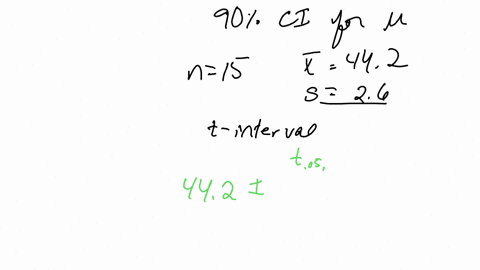 90% CI for μ
n=15 x̄ = 44.2
s = 2.6
t-interval
t.05,
44.2 ±